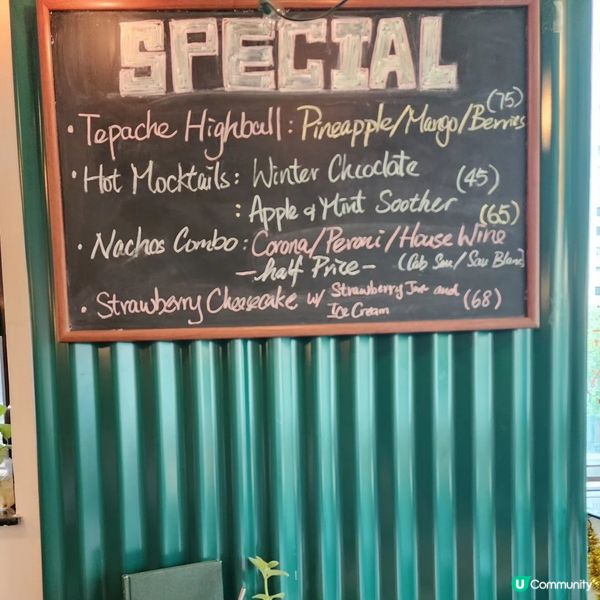 SPECIAL
(75)
• Tepache Highball : Pineapple/Mango/Berries
• Hot Mocktails : Winter Chocolate (45)
: Apple & Mint Soother (65)
• Nachos Combo : Corona/Peroni/House Wine
- half Price - (Cab Sau/Sau Blanc)
• Strawberry Cheesecake w/ Strawberry Jam and (68)
Ice Cream
U Community's